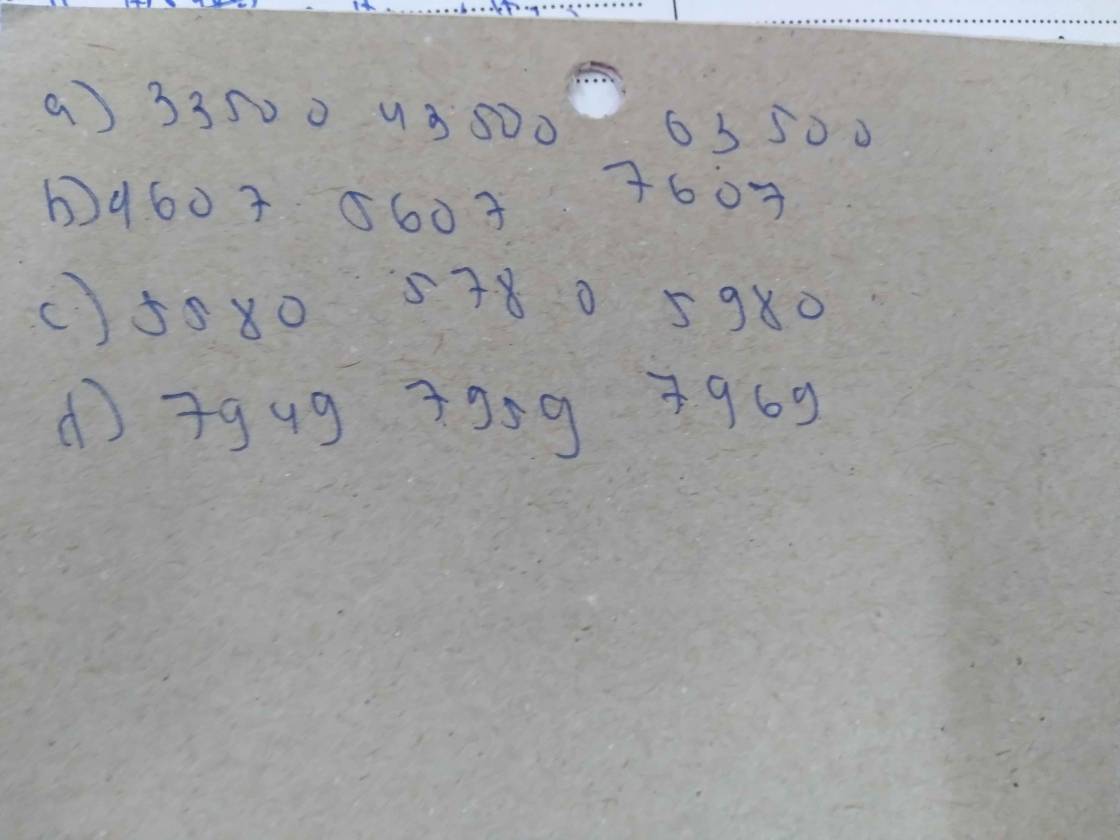 a) 33500 43500 63500
b) 4607 5607 7607
c) 5580 5780 5980
d) 7949 7959 7969